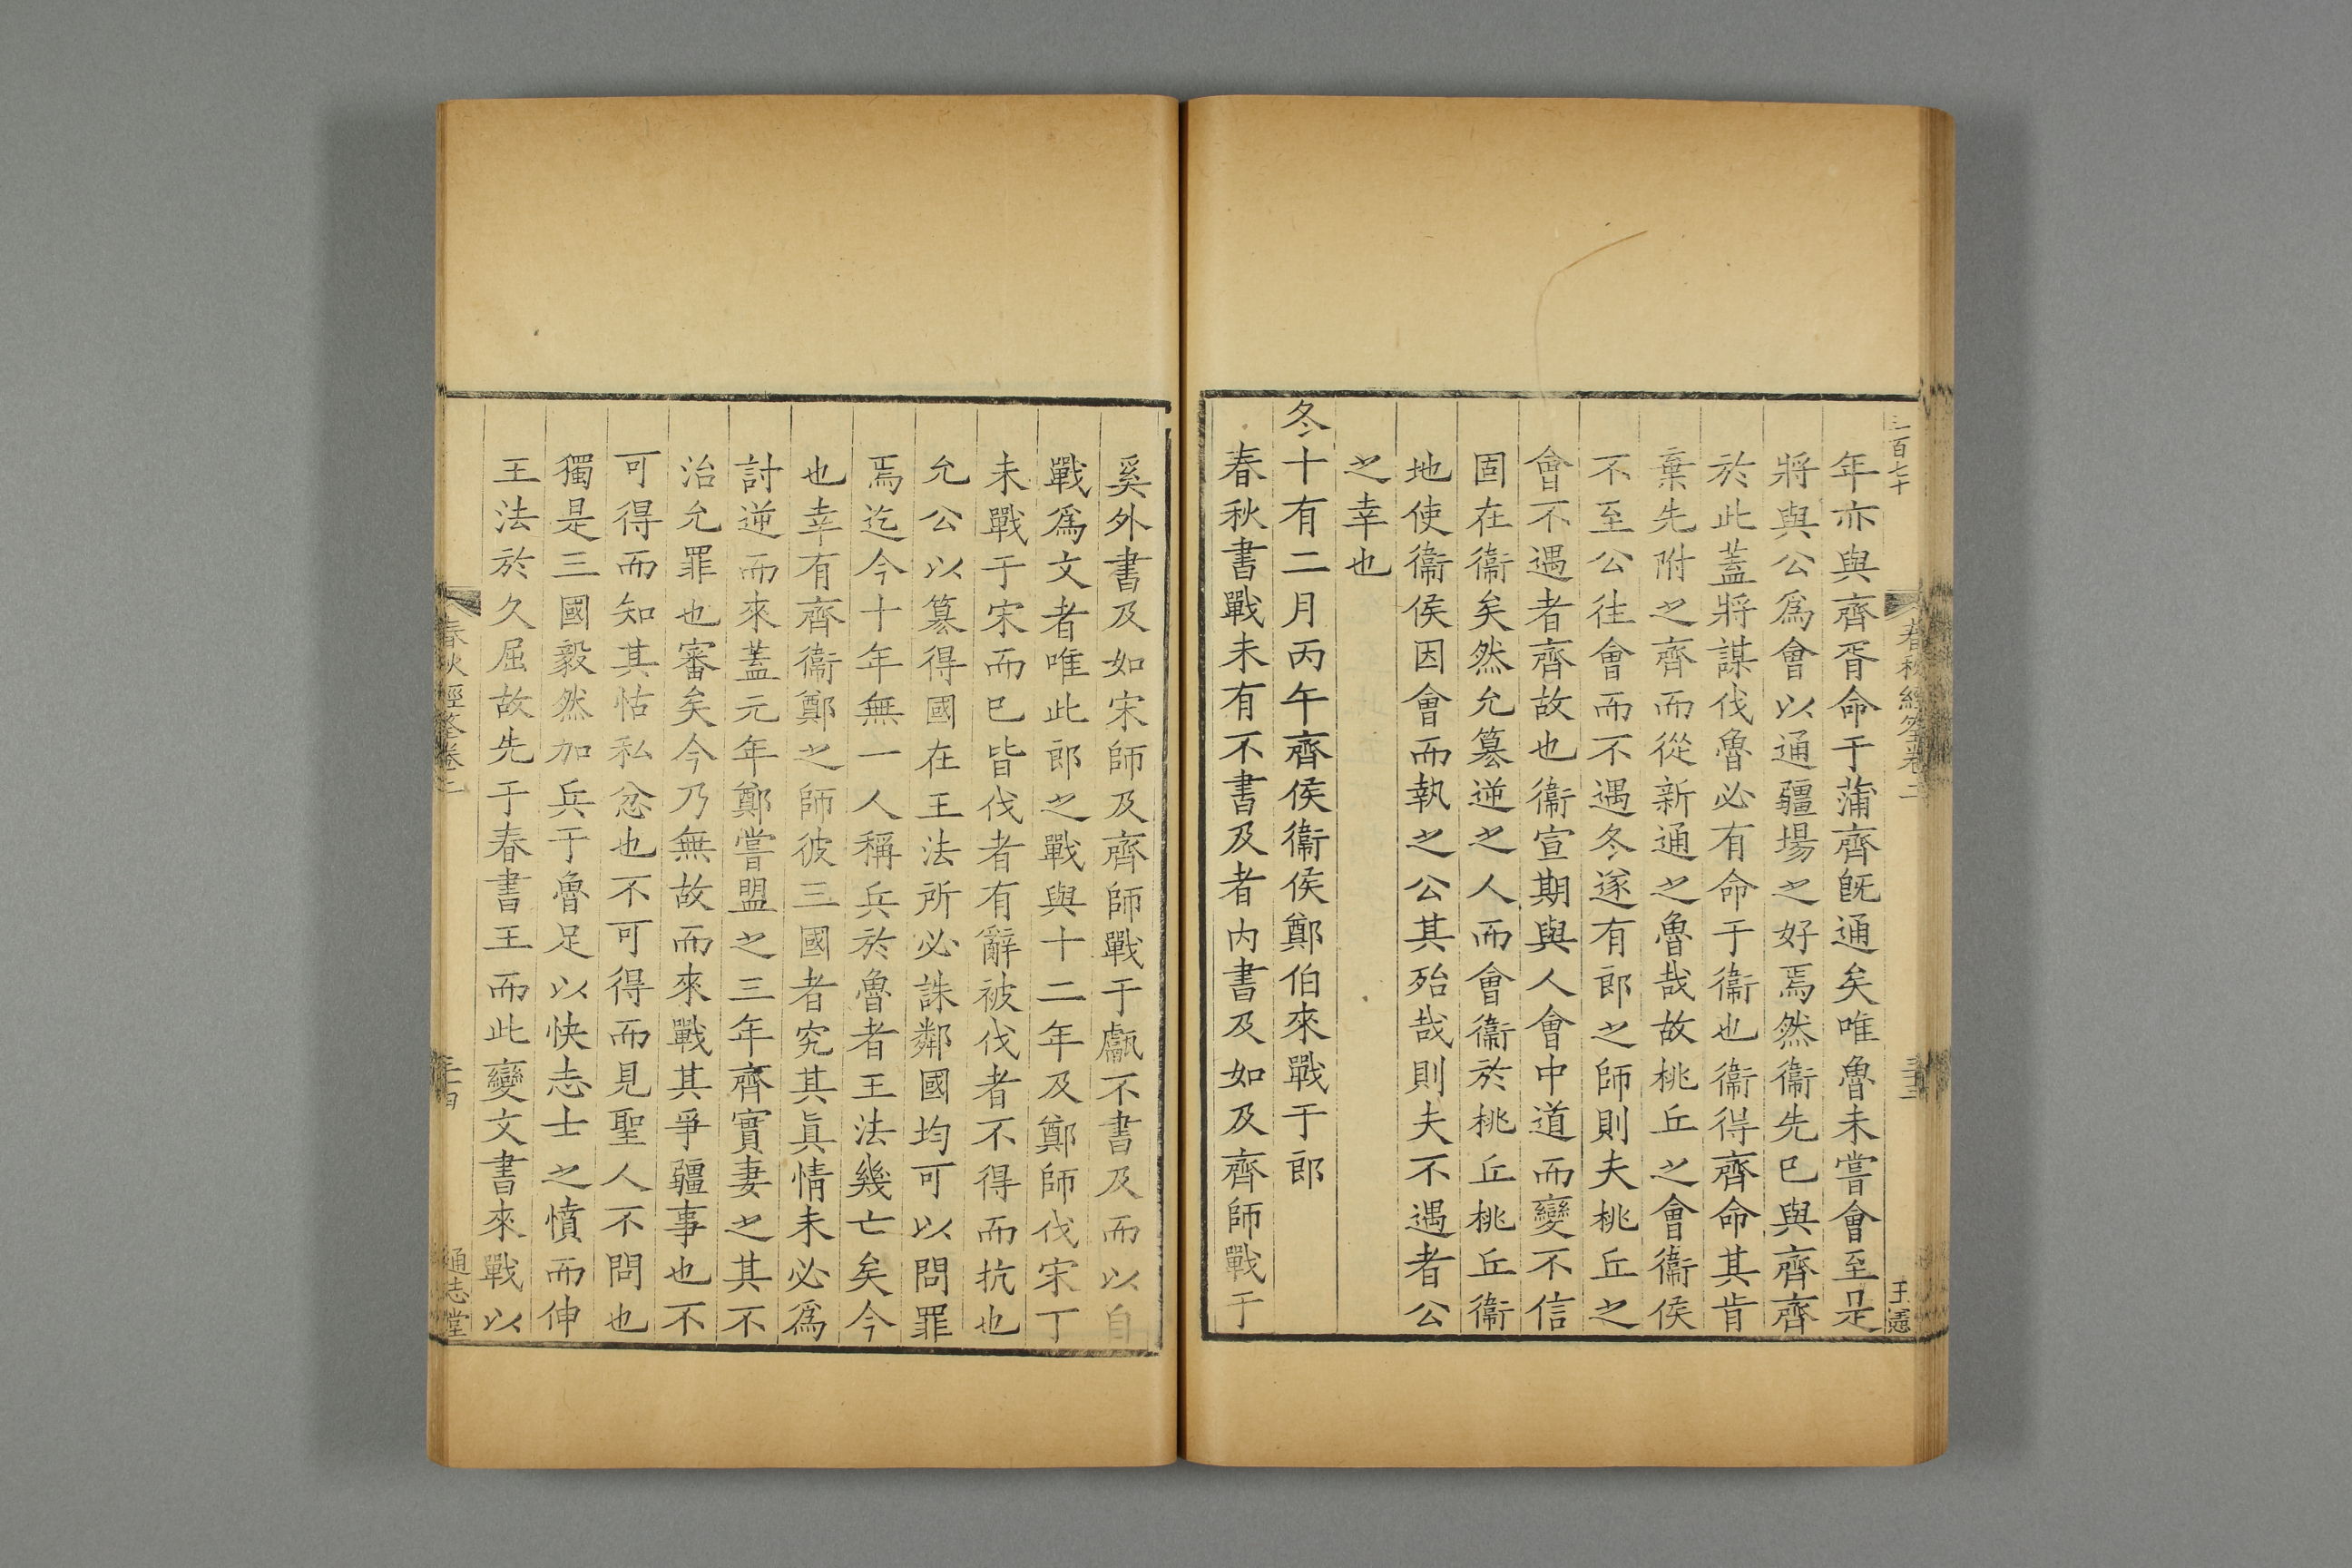 三百七十
春秋經筌卷二
三十三
王憲
年亦與齊胥命于蒲齊旣通矣唯魯未嘗會至是
將與公爲會以通疆埸之好焉然衞先巳與齊齊
於此蓋將謀伐魯必有命于衞也衞得齊命其肯
棄先附之齊而從新通之魯哉故桃丘之會衞侯
不至公往會而不遇冬遂有郎之師則夫桃丘之
會不遇者齊故也衞宣期與人會中道而變不信
固在衞矣然允簒逆之人而會衞於桃丘桃丘衞
地使衞侯因會而執之公其殆哉則夫不遇者公
之幸也
冬十有二月丙午齊侯衞侯鄭伯來戰于郎
春秋書戰未有不書及者内書及如及齊師戰于
奚外書及如宋師及齊師戰于甗不書及而以自
戰爲文者唯此郎之戰與十二年及鄭師伐宋丁
未戰于宋而巳皆伐者有辭被伐者不得而抗也
允公以簒得國在王法所必誅鄰國均可以問罪
焉迄今十年無一人稱兵於魯者王法幾亡矣今
也幸有齊衞鄭之師彼三國者究其眞情未必爲
討逆而來蓋元年鄭嘗盟之三年齊實妻之其不
治允罪也審矣今乃無故而來戰其爭疆事也不
可得而知其怙私忿也不可得而見聖人不問也
獨是三國毅然加兵于魯足以快志士之憤而伸
王法於久屈故先于春書王而此變文書來戰以
春秋經筌卷二
三十四
通志堂